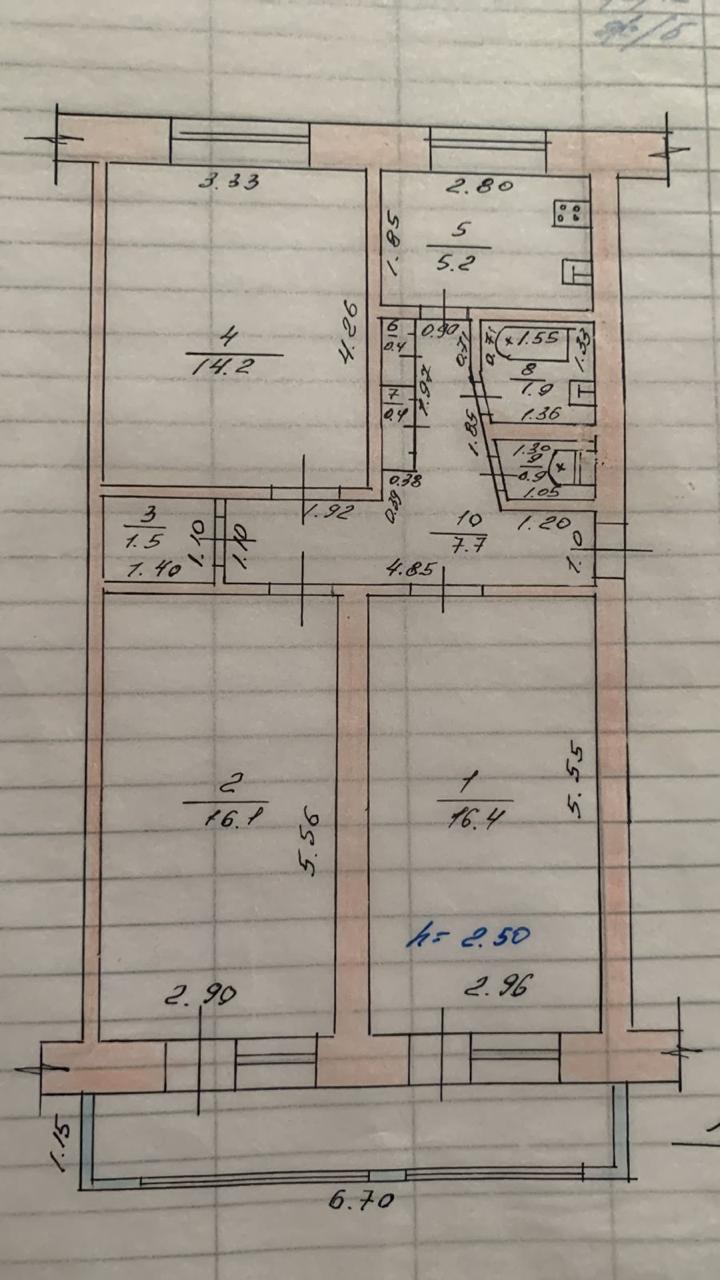 3.33
2.80
1.85
5
5.2
4.26
4
14.2
6
0.4
0.90
0.71
0.71
1.55
1.33
8
1.9
1.36
7
0.4
1.97
1.85
1.30
9
0.9
1.05
0.38
0.39
1.92
3
1.5
1.40
1.10
1.10
10
7.7
1.20
4.85
2
16.1
5.56
1
16.4
5.55
h= 2.50
2.90
2.96
1.15
6.70